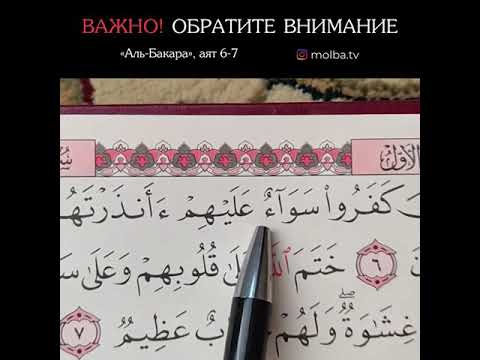 ВАЖНО! ОБРАТИТЕ ВНИМАНИЕ
«Аль-Бакара», аят 6-7
molba.tv
كَفَرُوا۟ سَوَآءٌ عَلَيْهِمْ ءَأَنذَرْتَهُ
٦ خَتَمَ ٱللَّ قُلُوبِهِمْ وَعَلَىٰ
غِشَٰوَةٌۖ وَلَهُمْ عَظِيمٌ ٧